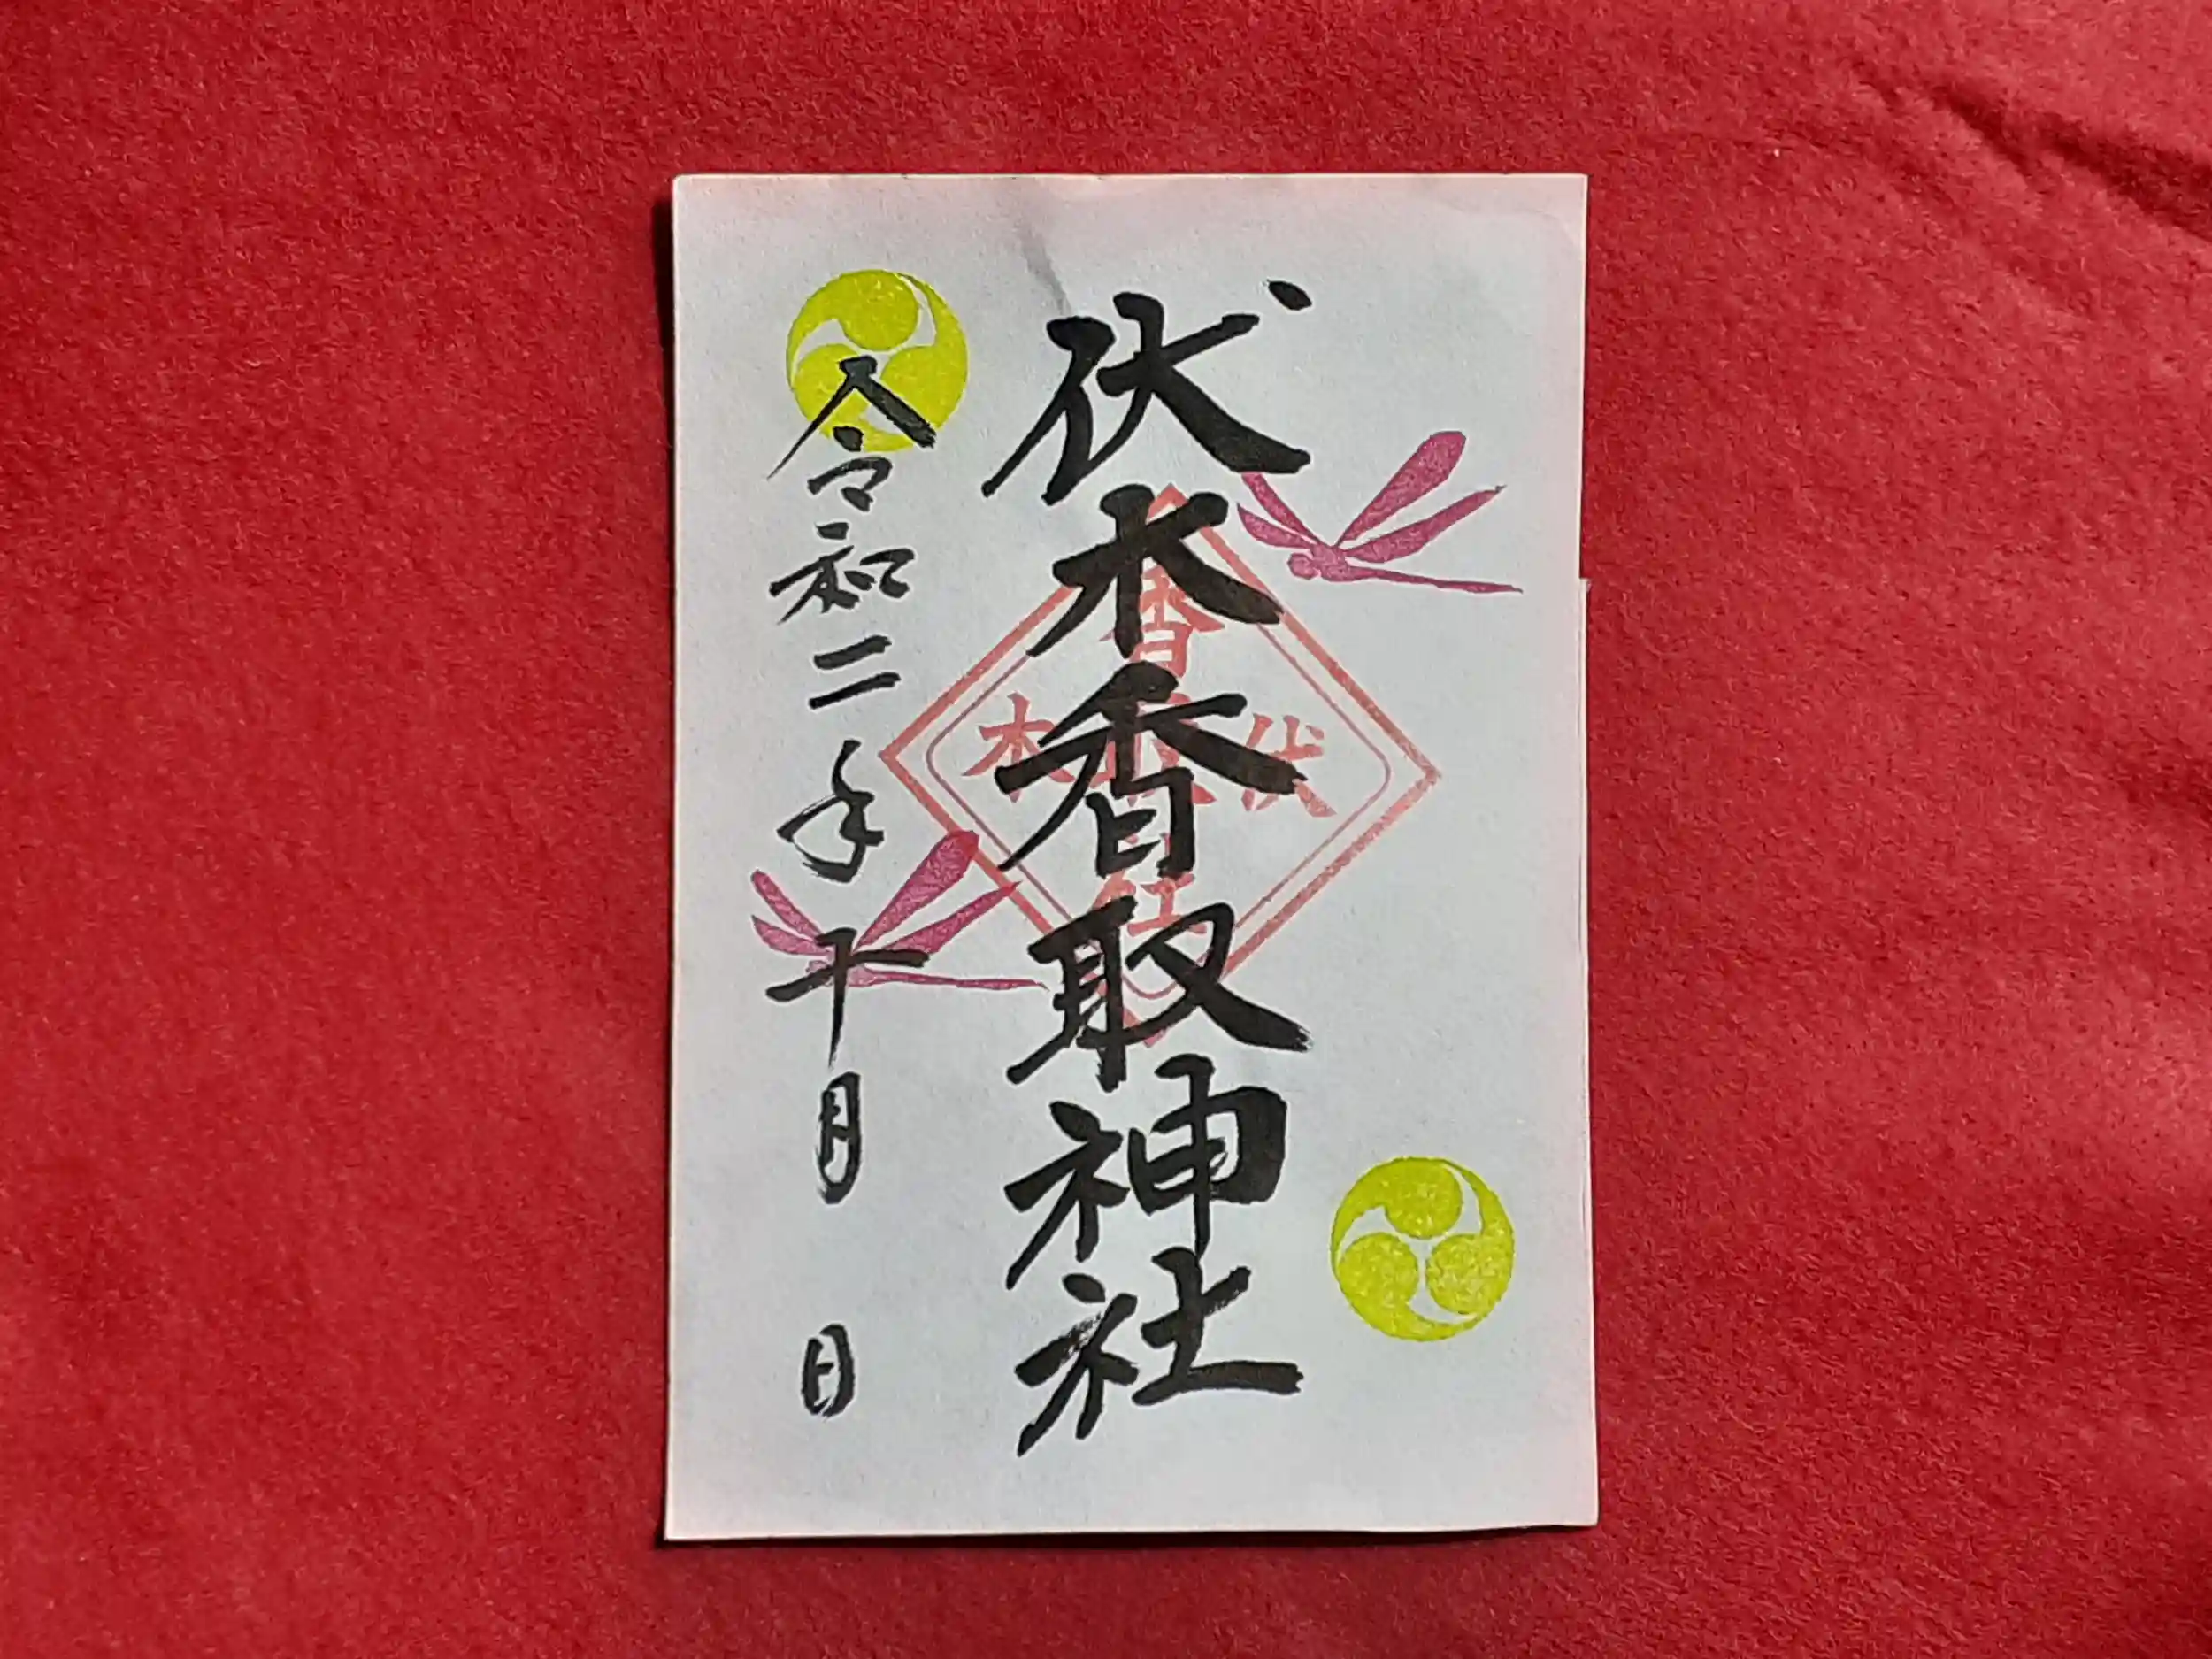 伏木香取神社
令和二年十月　日
伏木
香取神社